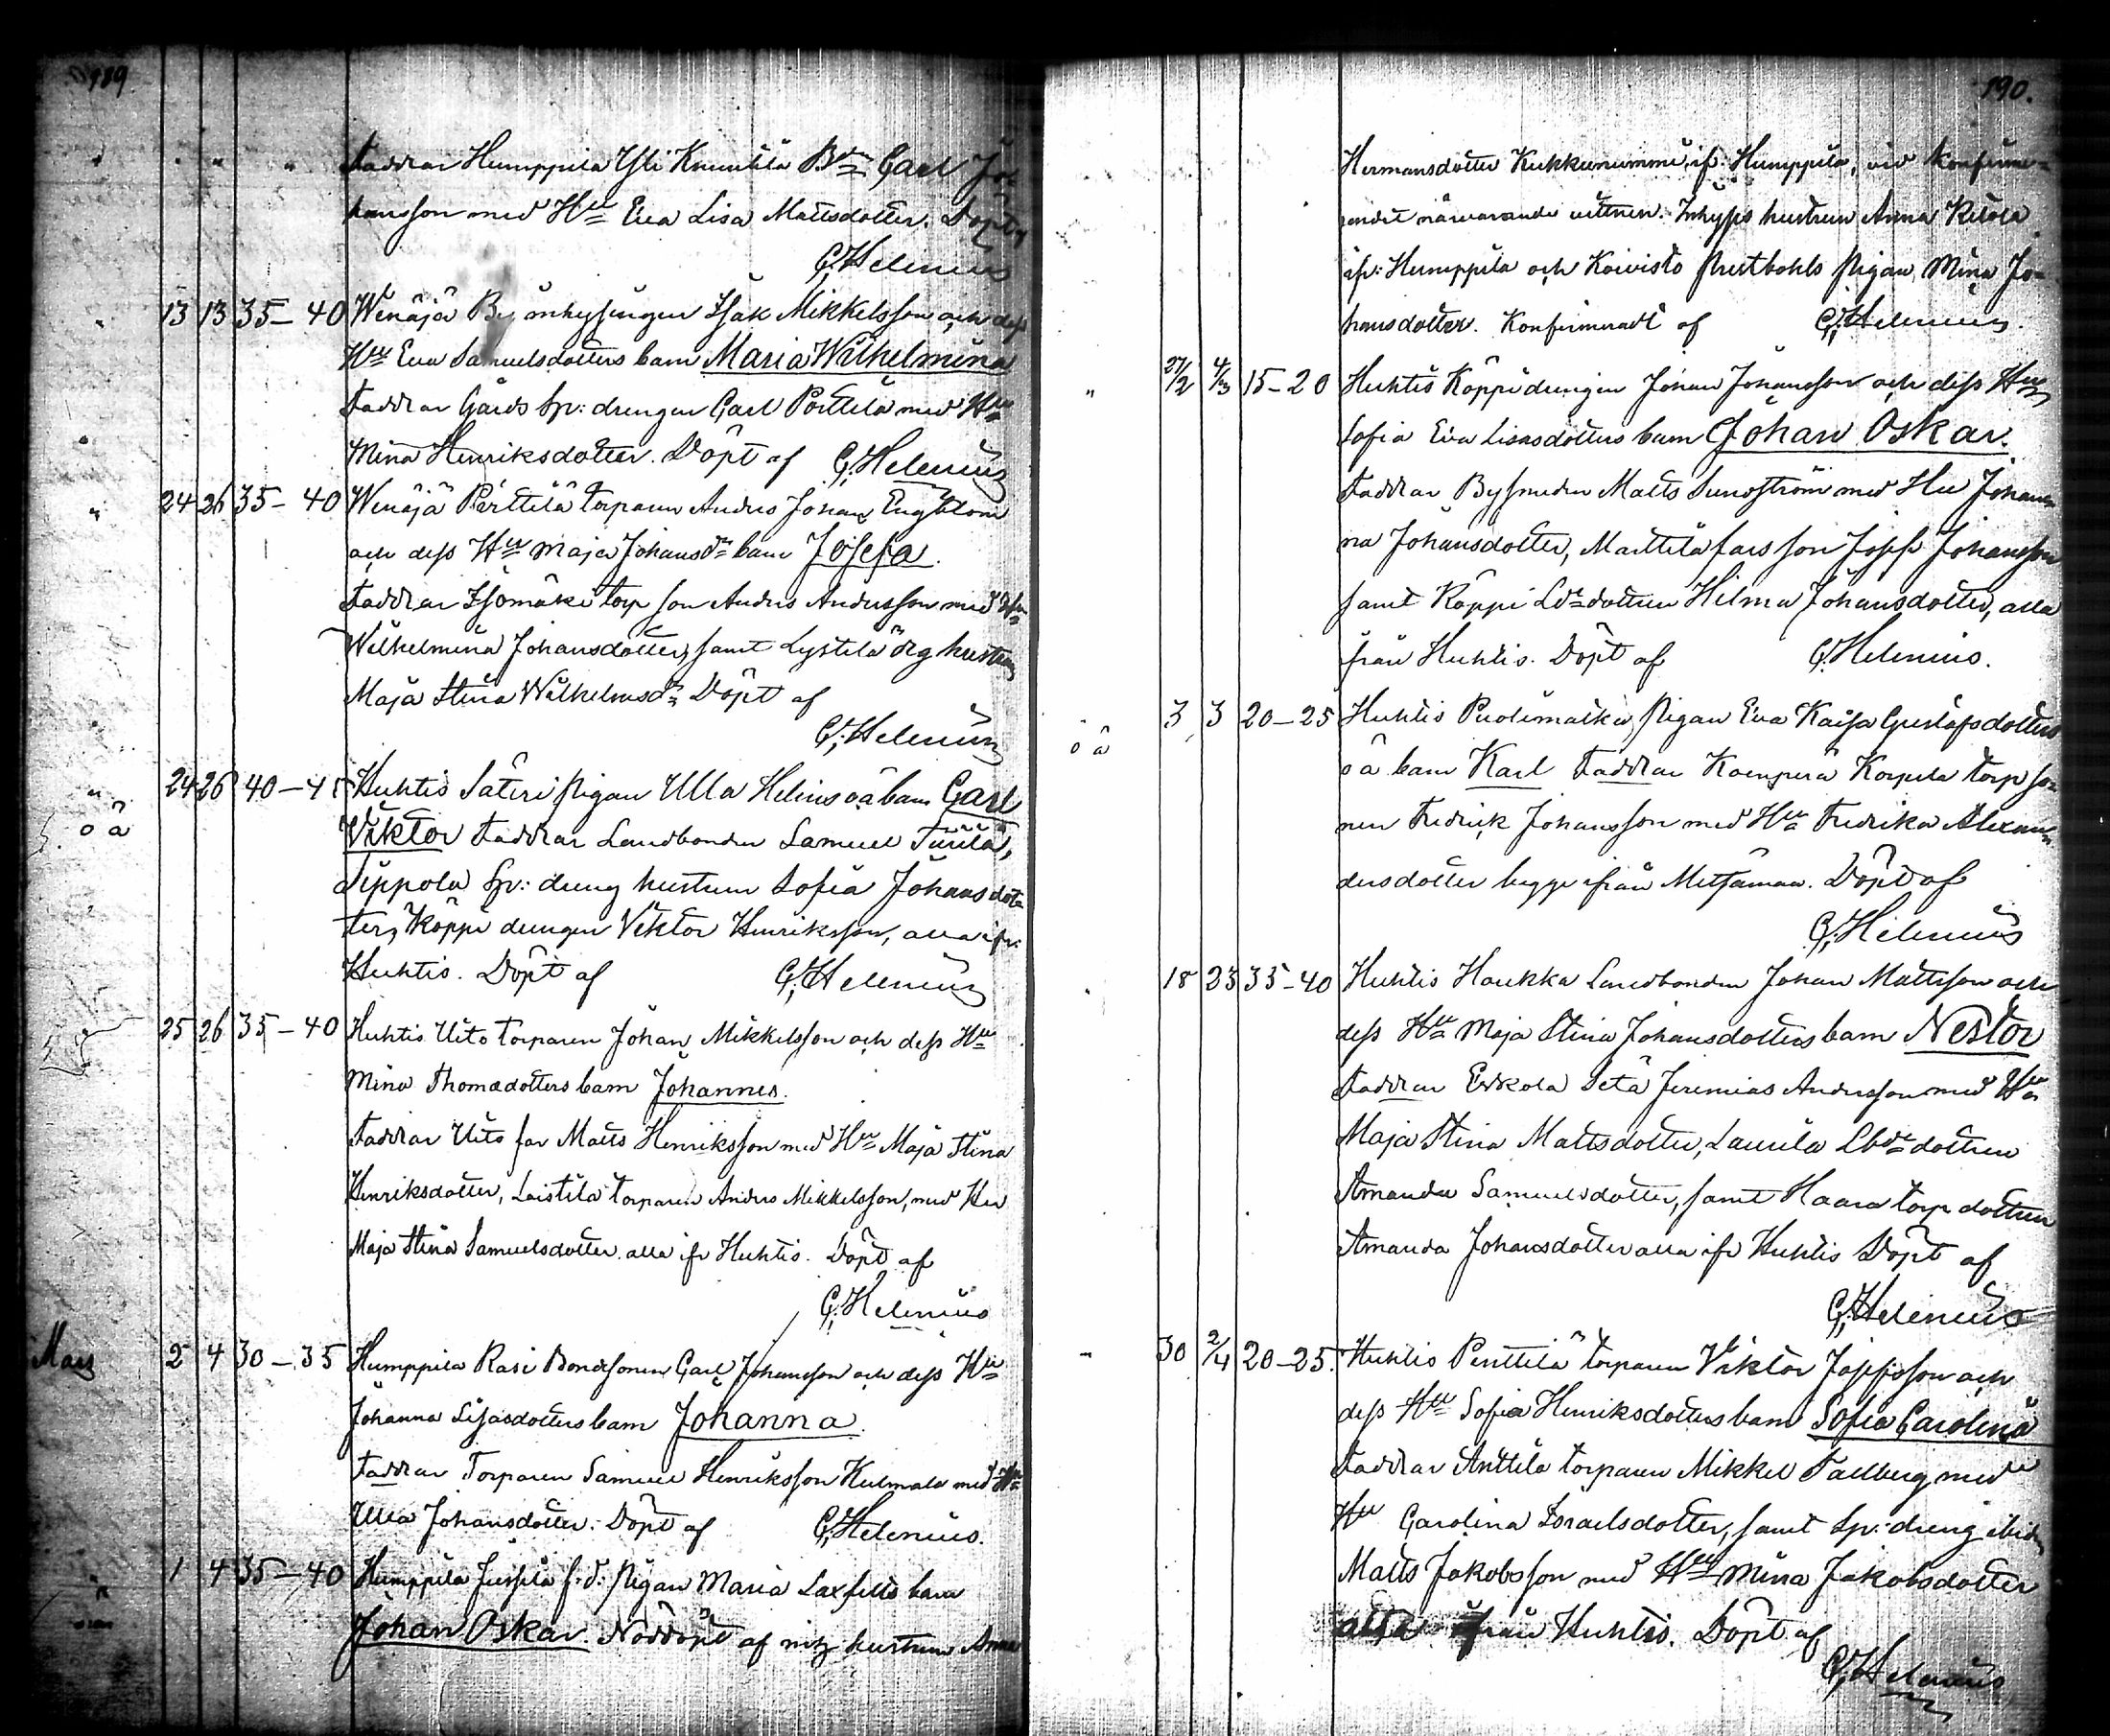 189.
Faddrar Humppila Yli Knuutila Bde Carl Jo-
hansson med Hu Eva Lisa Mattsdotter. Döpt af
G. Helenius
" 13 13 35–40 Wenäjä By inhysingen Isak Mikkelsson och dess
Hu Eva Samuelsdotters barn Maria Wilhelmina
Faddrar Gårds Sp: drengen Carl Perttilä med Hu
Mina Henriksdotter. Döpt af G. Helenius
" 24 26 35–40 Wenäjä Perttilä torparen Anders Johan Engblom
och dess Hu Maja Johansdr barn Josefa.
Faddrar Isomäki torp son Anders Andersson med Hu
Wilhelmina Johansdotter, samt Lystilä drg hustru
Maja Stina Wilhelmsdr Döpt af
G. Helenius
" 24 26 40–45 Huhtis Säteri pigan Ulla Helins oä barn Carl
o ä Viktor Faddrar Landbonden Samuel Turila,
Seppola Sp: dreng hustrun Sofia Johansdot-
ter, Köppi drengen Viktor Henriksson, alla ifr:
Huhtis. Döpt af G. Helenius
25 26 35–40 Huhtis Uito torparen Johan Mikkelsson och dess Hu
Mina Thomædotters barn Johannes.
Faddrar Uito far Matts Henriksson med Hu Maja Stina
Henriksdotter, Laistila torparen Anders Mikkelsson, med Hu
Maja Stina Samuelsdotter alla ifr Huhtis. Döpt af
G. Helenius
Mars 2 4 30–35 Humppila Rasi Bondesonen Carl Johansson och dess Hu
Johanna Lisasdotters barn Johanna.
Faddrar Torparen Samuel Henriksson Kulmala med Hu
Ulla Johansdotter. Döpt af G. Helenius.
1 4 35–40 Humppila Jussila f.d. pigan Maria Laxfelts barn
Johan Oskar. Nöddöpt af hustrun Anna
190.
Hermansdotter Kukkunummi, ifr: Humppila, vid konfirme-
randet närvarande vittnen: Inhyses hustrun Anna Ketola
ifr: Humppila och Koivisto Prestbohls pigan Mina Jo-
hansdotter. Konfirmeradt af G. Helenius.
" 27/2 4/3 15–20 Huhtis Köppi drengen Johan Johansson och dess Hu
Sofia Eva Lisasdotters barn Johan Oskar.
Faddrar Bysmeden Matts Sundström med Hu Johan-
na Johansdotter, Marttila fars son Josef Johansson
samt Köppi Lde dottren Hilma Johansdotter, alla
från Huhtis. Döpt af G. Helenius.
3 3 20–25 Huhtis Puolimatka pigan Eva Kaisa Gustafsdotters
o ä oä barn Karl Faddrar Koenperä Korpela torp so-
nen Fredrik Johansson med Hu Fredrika Alexan-
dersdotter begge ifrån Metsämaa. Döpt af
G. Helenius
18 23 35–40 Huhtis Haukka Landbonden Johan Mattsson och
dess Hu Maja Stina Johansdotters barn Nestor
Faddrar Erkola Jeremias Andersson med Hu
Maja Stina Mattsdotter, Laurila Lbde dottren
Amanda Samuelsdotter, samt Haara torp dottren
Amanda Johansdotter alla ifr Huhtis Döpt af
G. Helenius
30 2/4 20–25. Huhtis Penttilä torparen Viktor Josefsson och
dess Hu Sofia Henriksdotters barn Sofia Carolina
Faddrar Anttila torparen Mikkel Tallberg med
Hu Carolina Israelsdotter, samt Sp: dreng ibid
Matts Jakobsson med Hu Mina Jakobsdotter
alla från Huhtis. Döpt af
G. Helenius